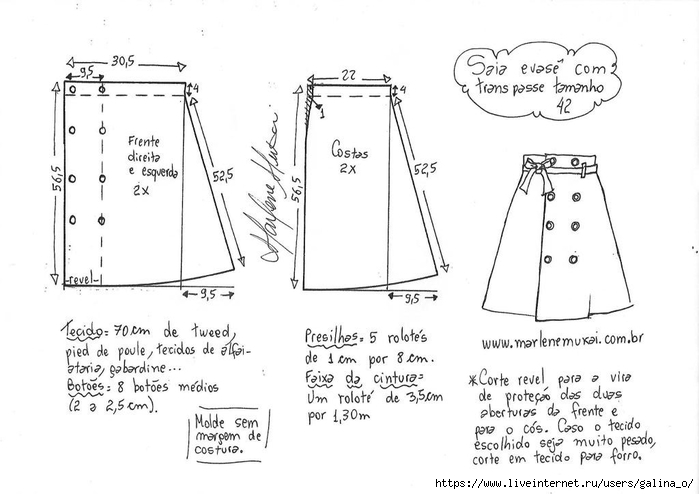 Saia evasê com
transpasse tamanho
42
30,5
9,5
4
56,5
Frente
direita
e esquerda
2x
52,5
-revel-
9,5
22
4
1
56,5
Costas
2x
52,5
9,5
Marlene Mukai
www.marlenemukai.com.br
Tecido= 70cm de tweed,
pied de poule, tecidos de alfai-
ataria, gabardine...
Botões= 8 botões médios
(2 a 2,5cm).
Molde sem
margem de
costura.
Presilhas= 5 rolotés
de 1cm por 8cm.
Faixa da cintura=
Um roloté de 3,5cm
por 1,30m
*Corte revel para a vira
de proteção das duas
aberturas da frente e
para o cós. Caso o tecido
escolhido seja muito pesado,
corte em tecido para forro.
https://www.liveinternet.ru/users/galina_o/